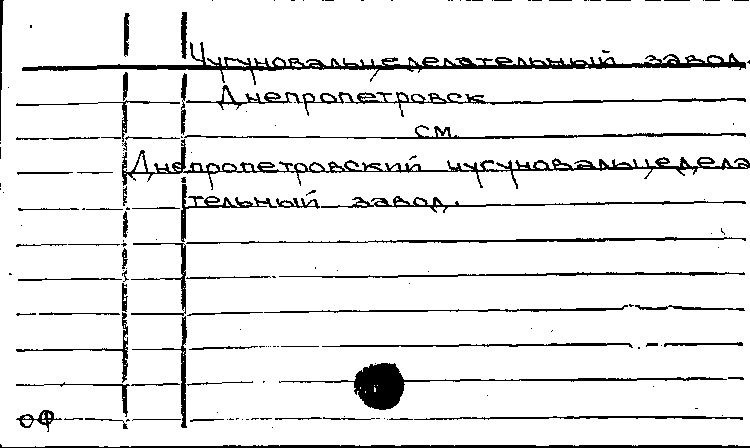 Чугуновальцеделательный завод.
Днепропетровск
см.
Днепропетровский чугуновальцедела
тельный завод.
ОФ